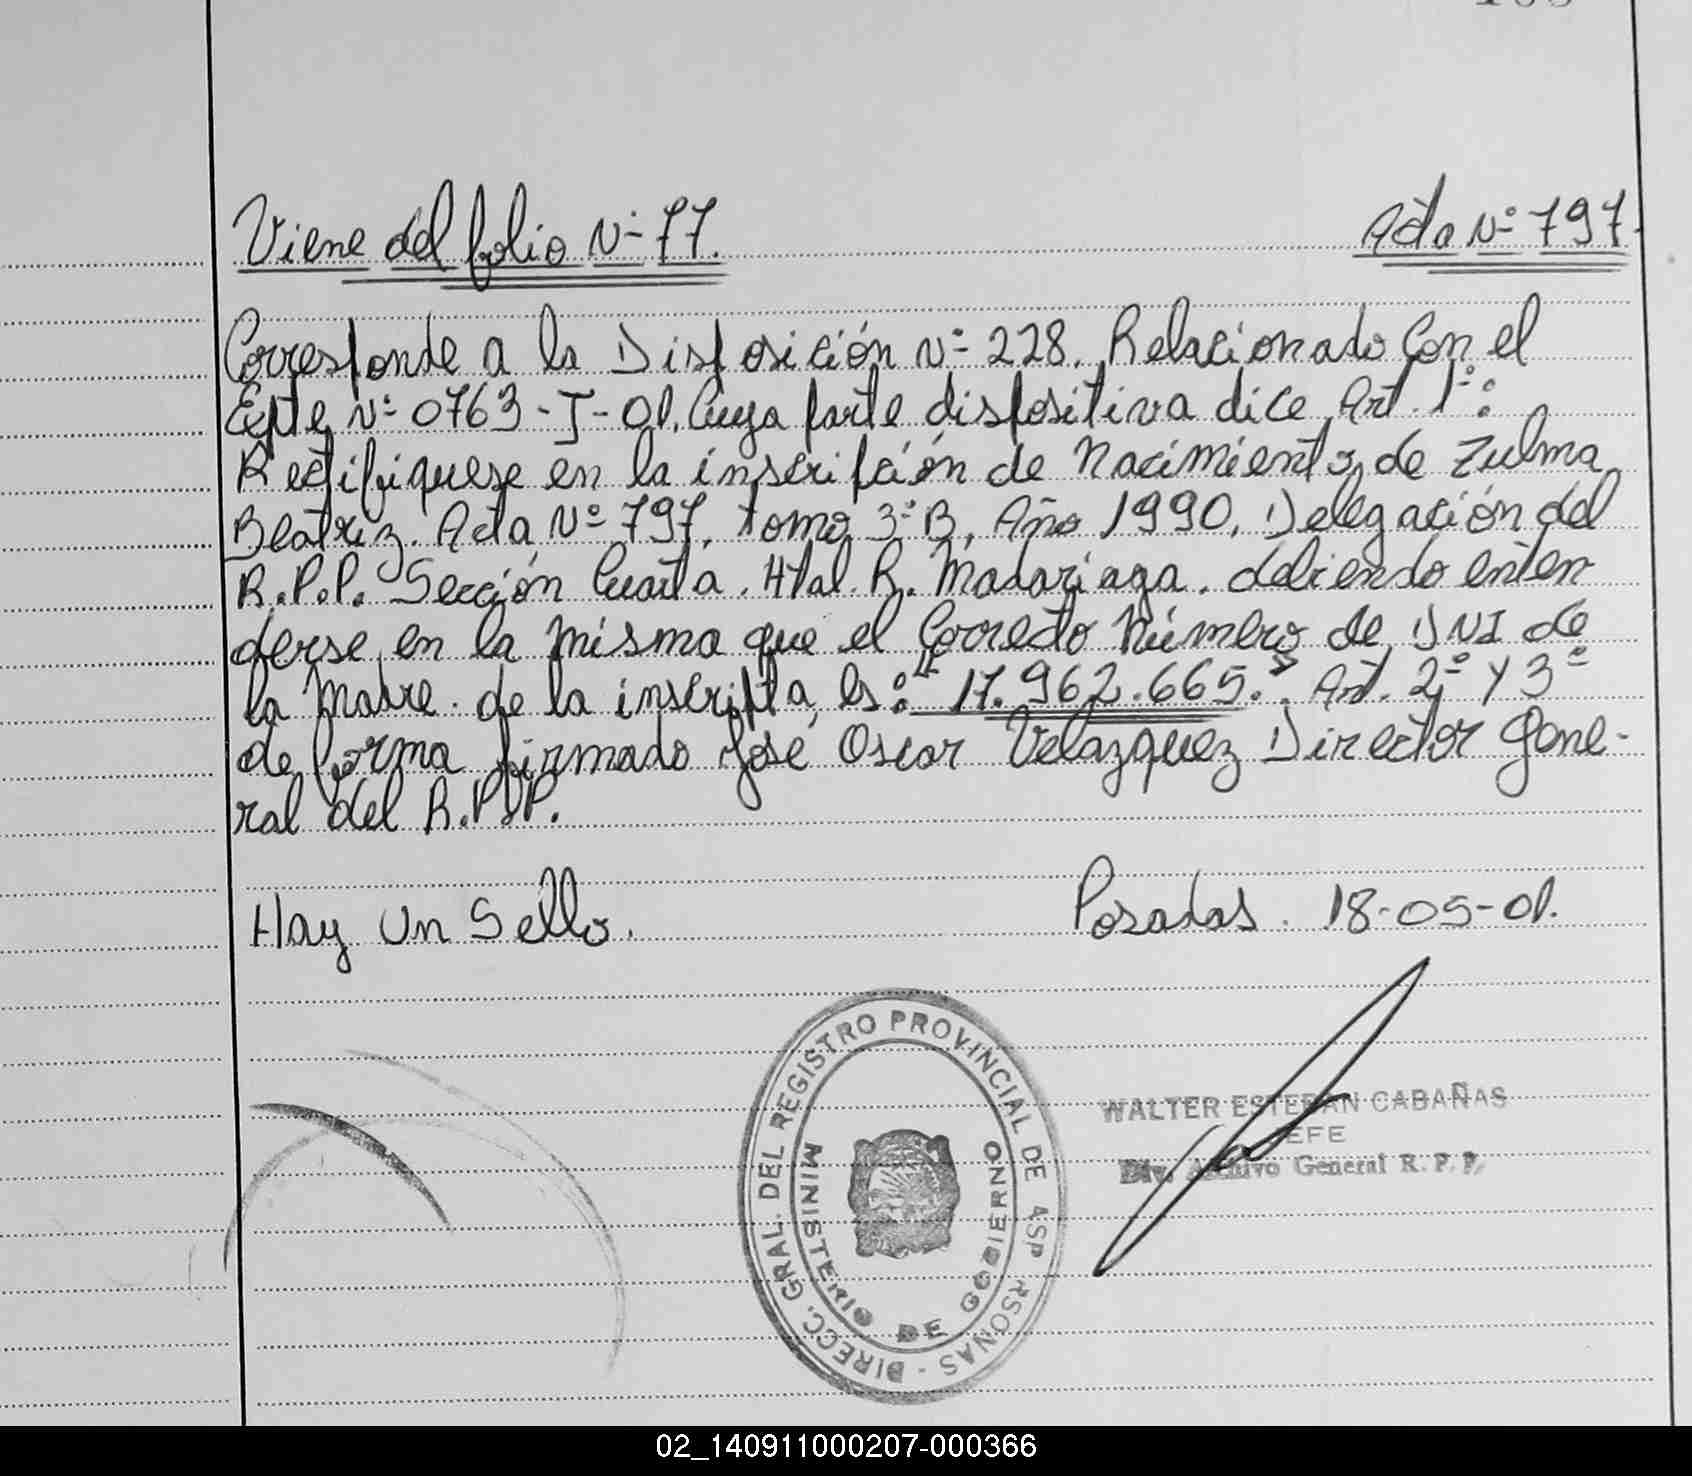 Viene del folio Nº 77. Acta Nº 797.
Corresponde a la Disposición Nº 228. Relacionado Con el
Expte Nº 0763-I-01. Cuya parte dispositiva dice Art. 1º:
Rectifiquese en la inscripción de Nacimiento de Zulma
Beatriz. Acta Nº 797, tomo 3º B, Año 1990, Delegación del
R.P.P. Sección Cuarta. Htal. R. Madariaga. debiendo enten
derse en la misma que el Correcto Número de DNI de
la Madre. de la inscripta, es: "17.962.665." Art. 2º y 3º
de forma firmado José Oscar Velazquez Director Gene-
ral del R.P.P.
Hay Un Sello. Posadas. 18-05-01.
DIRECC. GRAL. DEL REGISTRO PROVINCIAL DE LAS P RSONAS -
MINISTERIO DE GOBIERNO
WALTER ESTEBAN CABAÑAS
JEFE
Div. Archivo General R. P. P.
02_140911000207-000366